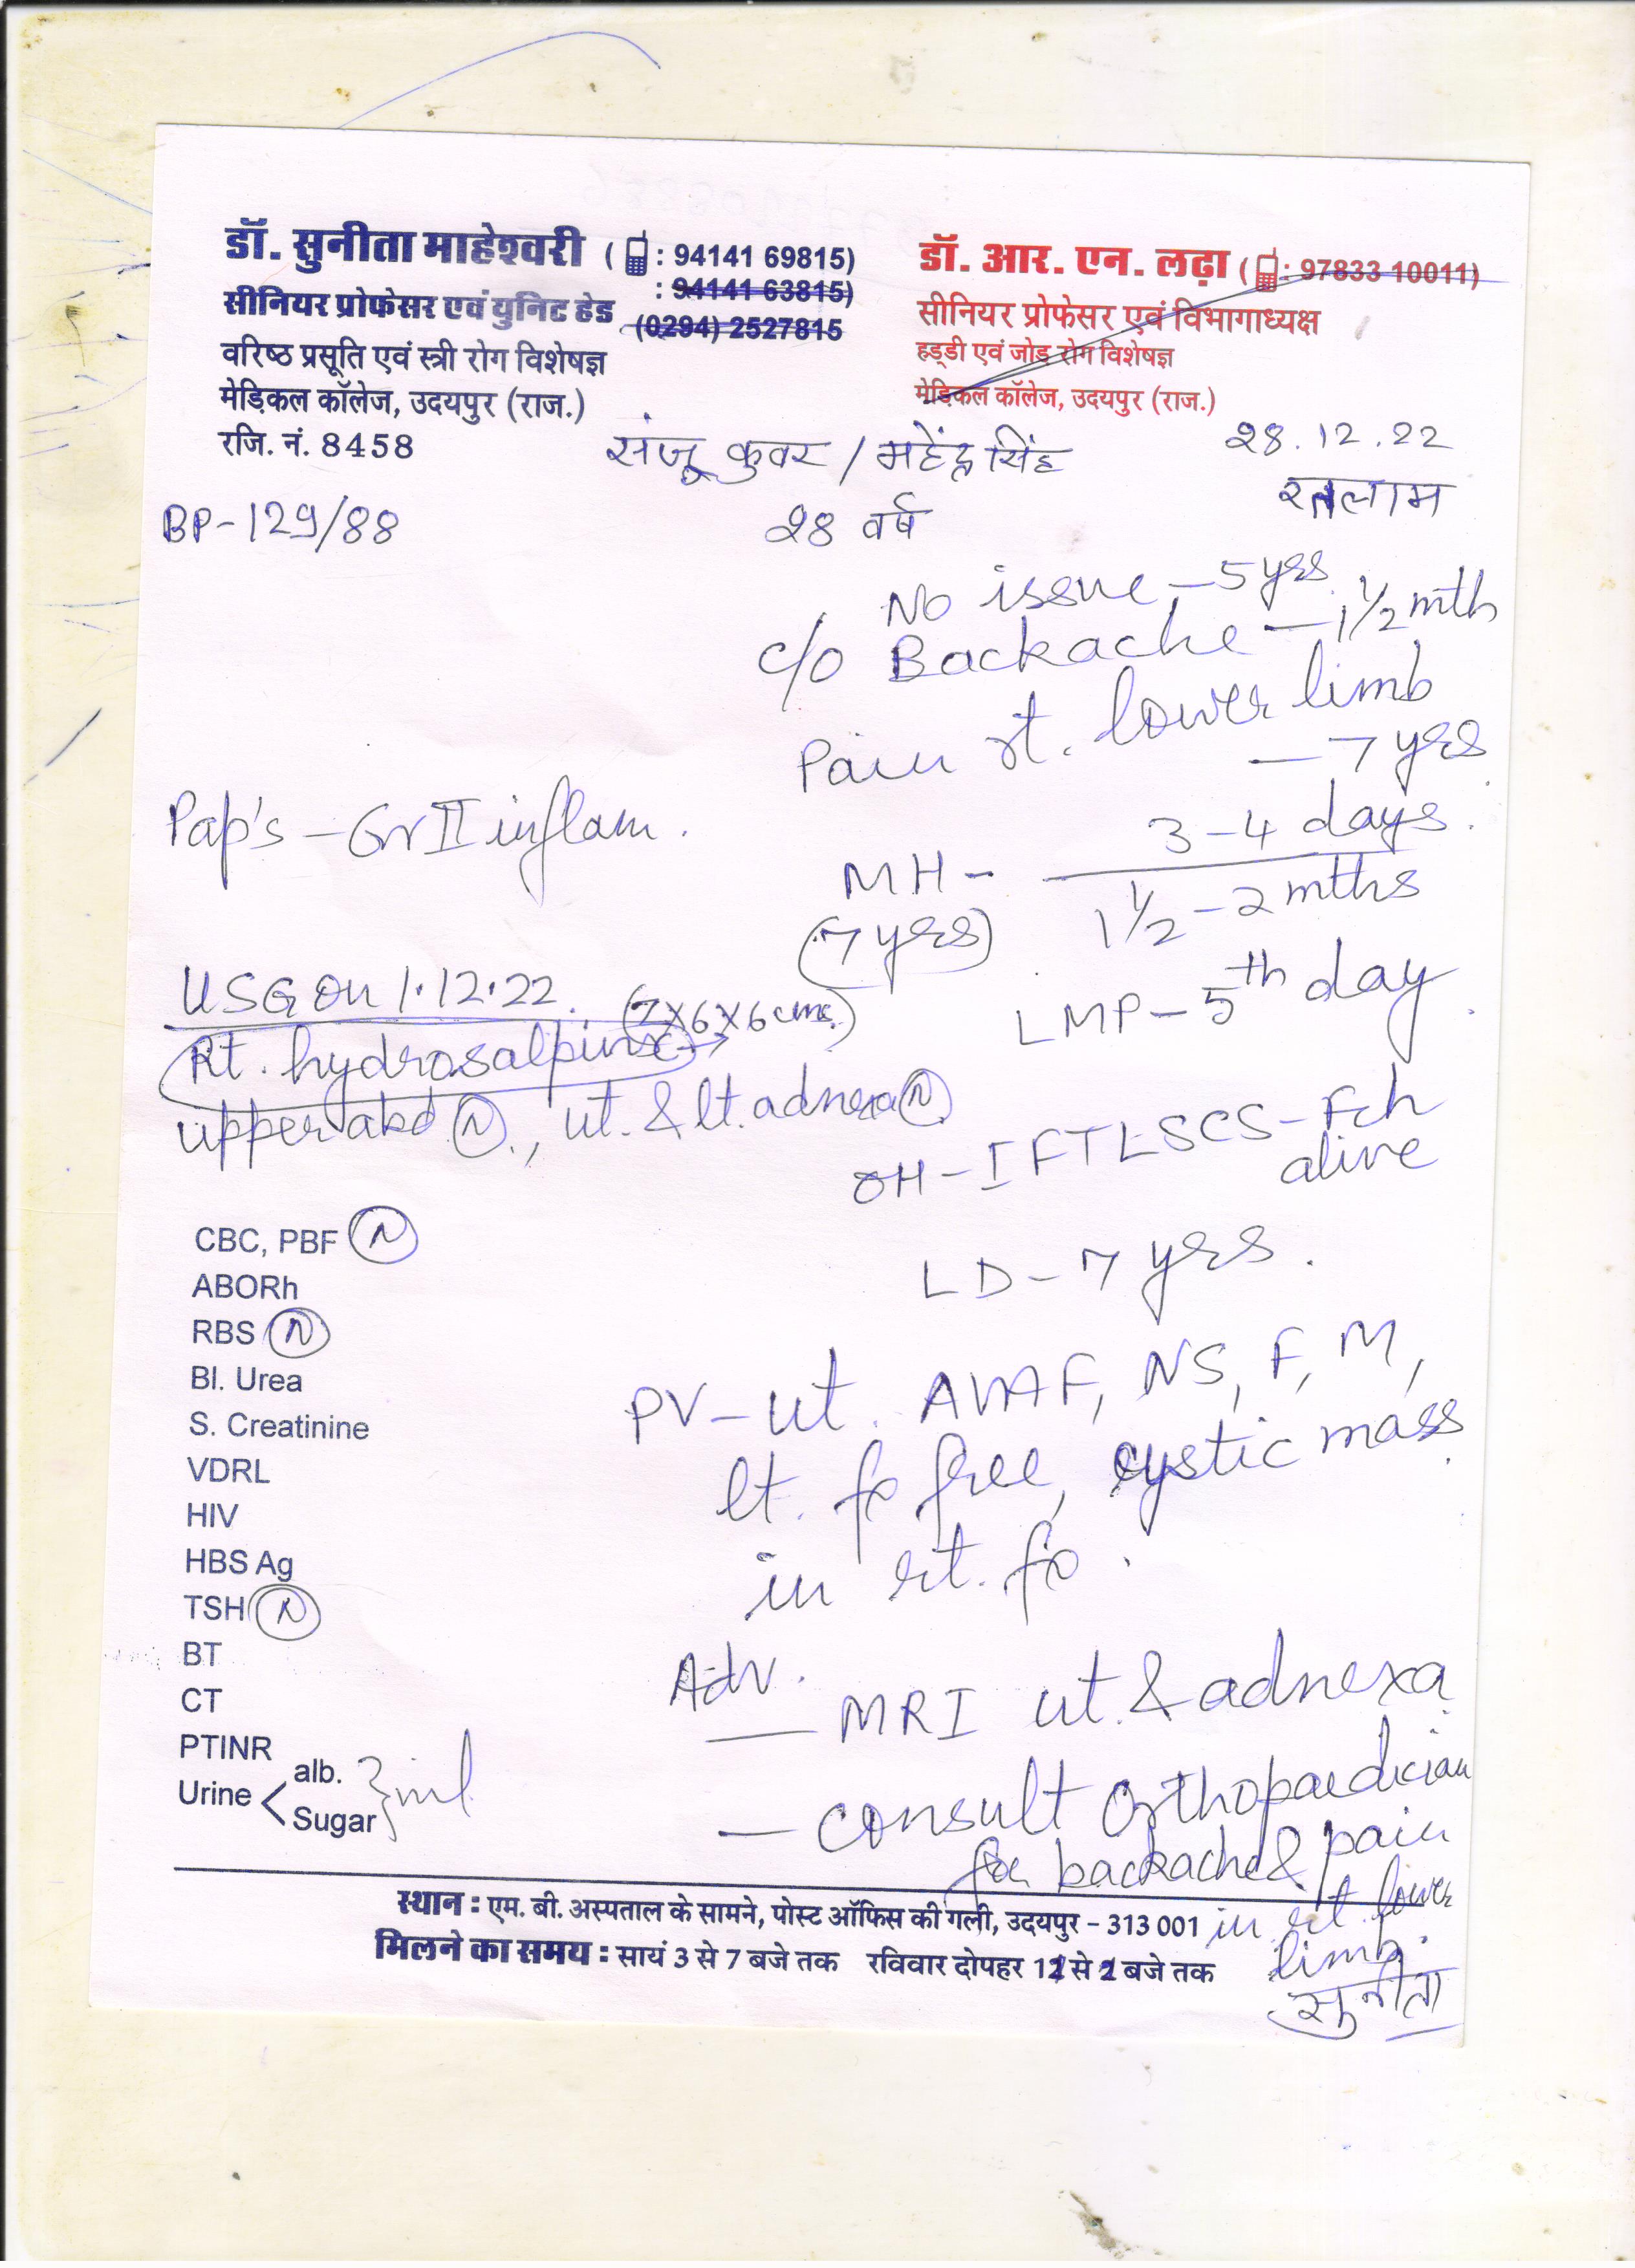 डॉ. सुनीता माहेश्वरी ( : 94141 69815)
: 94141 63815)
सीनियर प्रोफेसर एवं युनिट हेड (0294) 2527815
वरिष्ठ प्रसूति एवं स्त्री रोग विशेषज्ञ
मेडिकल कॉलेज, उदयपुर (राज.)
रजि. नं. 8458
डॉ. आर. एन. लढ़ा ( : 97833 10011)
सीनियर प्रोफेसर एवं विभागाध्यक्ष
हड्डी एवं जोड़ रोग विशेषज्ञ
मेडिकल कॉलेज, उदयपुर (राज.)
संजू कुवर / महेंद्र सिंह
28.12.22
रतलाम
28 वर्ष
BP-129/88
No issue - 5 yrs.
c/o Backache - 1 1/2 mth
Pain rt. lower limb
- 7 yrs.
Pap's - Gr II inflam.
MH - 3-4 days.
1 1/2 - 2 mths
(7 yrs)
LMP - 5th day.
USG on 1.12.22.
Rt. hydrosalpinx → (7x6x6 cms.)
upper abd. (N)., ut. & lt. adnexa (N)
OH - I FTLSCS - Fch
alive
LD - 7 yrs.
CBC, PBF (N)
ABORh
RBS (N)
Bl. Urea
S. Creatinine
VDRL
HIV
HBS Ag
TSH (N)
BT
CT
PTINR
Urine < alb.
Sugar } nil
PV - ut. AVAF, NS, F, M,
lt. fx free, cystic mass
in rt. fx.
Adv.
- MRI ut. & adnexa
- consult Orthopaedician
for backache & pain
in rt. lower
limb.
सुनीता
स्थान : एम. बी. अस्पताल के सामने, पोस्ट ऑफिस की गली, उदयपुर - 313 001
मिलने का समय : सायं 3 से 7 बजे तक रविवार दोपहर 12 से 2 बजे तक